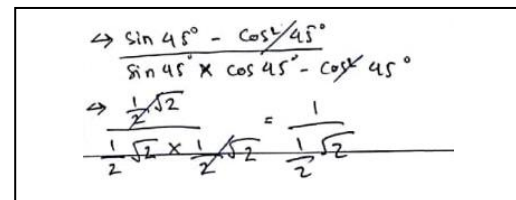 ⇔ sin 45° - cos² 45°
sin 45° × cos 45° - cos² 45°
⇔ 1/2 √2 = 1
1/2 √2 × 1/2 √2 1/2 √2